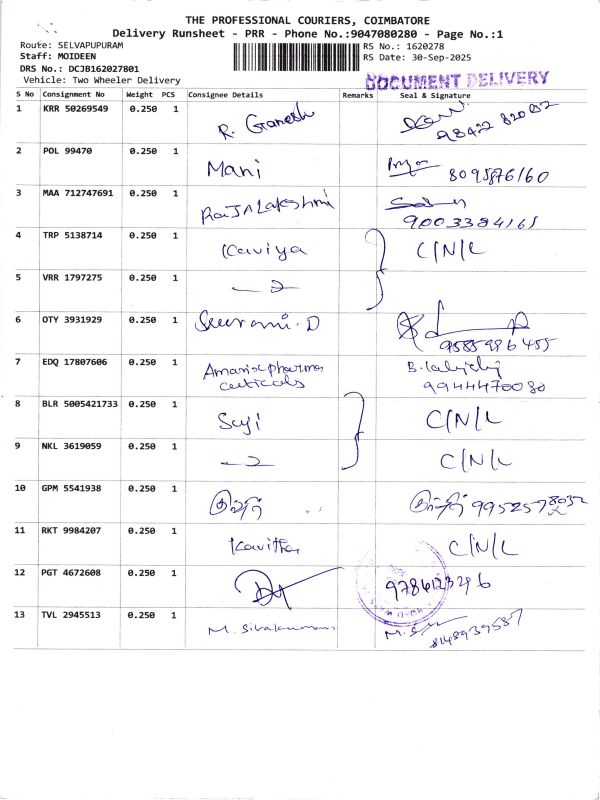 THE PROFESSIONAL COURIERS, COIMBATORE
Delivery Runsheet - PRR - Phone No.:9047080280 - Page No.:1
Route: SELVAPUPURAM
RS No.: 1620278
Staff: MOIDEEN
RS Date: 30-Sep-2025
DRS No.: DCJB162027801
Vehicle: Two Wheeler Delivery
DOCUMENT DELIVERY
S No Consignment No Weight PCS Consignee Details Remarks Seal & Signature
1 KRR 50269549 0.250 1 R. Ganesh
98422 82082
2 POL 99470 0.250 1 Mani
8095876160
3 MAA 712747691 0.250 1 RajaLakshmi
9003384165
4 TRP 5138714 0.250 1 Kaviya C/N/L
5 VRR 1797275 0.250 1
6 OTY 3931929 0.250 1
9585996455
7 EDQ 17807606 0.250 1 Amarisepharma
ceuticals
9944470080
8 BLR 5005421733 0.250 1 Suji C/N/L
9 NKL 3619059 0.250 1 C/N/L
10 GPM 5541938 0.250 1 9952578032
11 RKT 9984207 0.250 1 Kavitha C/N/L
12 PGT 4672608 0.250 1 9786123296
13 TVL 2945513 0.250 1 M. Sivakumar
8148939587